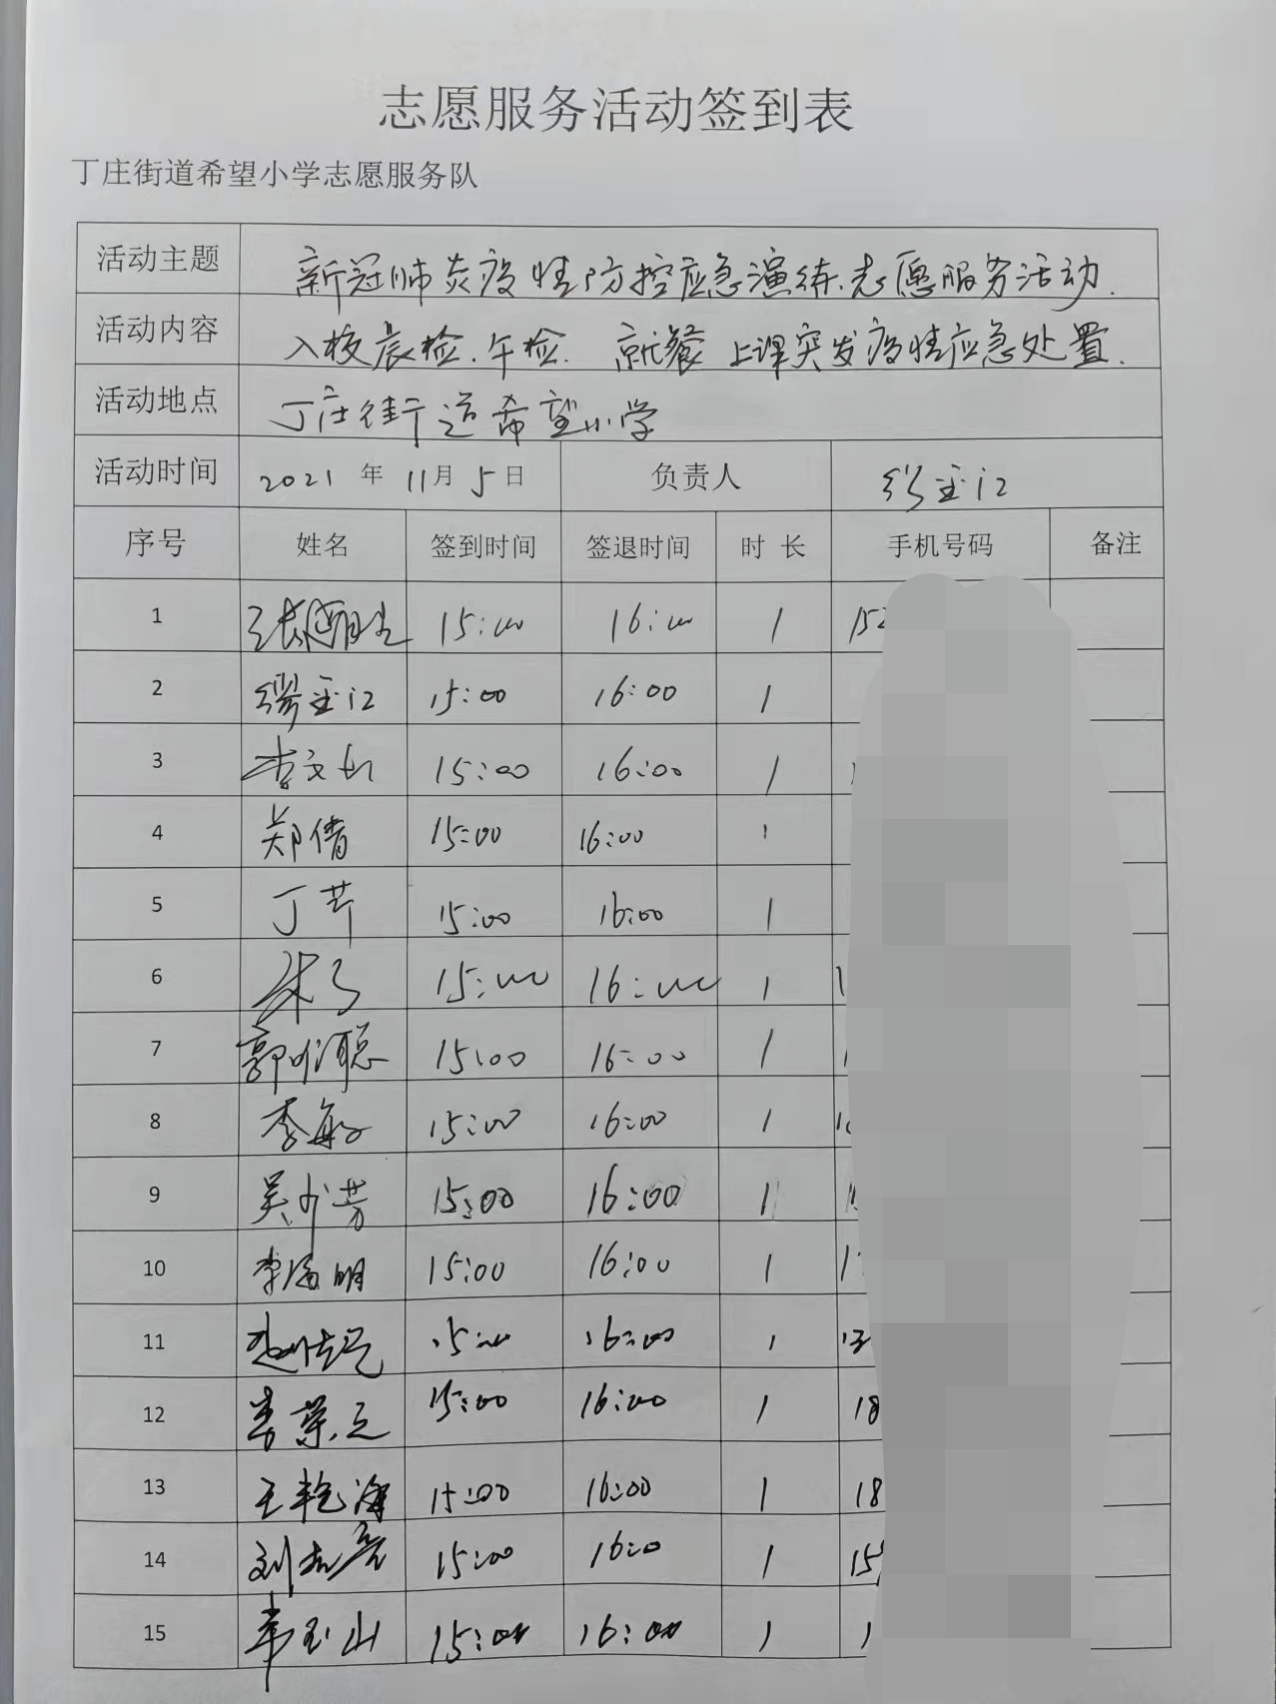 志愿服务活动签到表
丁庄街道希望小学志愿服务队
活动主题 新冠肺炎疫情防控应急演练志愿服务活动.
活动内容 入校晨检.午检. 就餐 上课突发疫情应急处置.
活动地点 丁庄街道希望小学
活动时间 2021 年 11月 5日 负责人
序号 姓名 签到时间 签退时间 时 长 手机号码 备注
1 15:00 16:00 1 152
2 15:00 16:00 1
3 15:00 16:00 1
4 郑倩 15:00 16:00 1
5 丁芹 15:00 16:00 1
6 15:00 16:00 1 1
7 15:00 16:00 1 1
8 李敏 15:00 16:00 1
9 15:00 16:00 1
10 15:00 16:00 1
11 15:00 16:00 1 13
12 15:00 16:00 1 18
13 王艳海 15:00 16:00 1 18
14 15:00 16:00 1 15
15 15:00 16:00 1 1